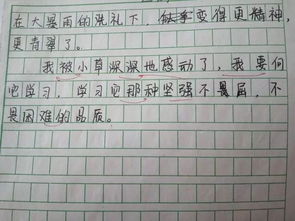 在大暴雨的洗礼下，变得更精神，
更青翠了。
我被小草深深地感动了，我要向
它学习，学习它那种坚强不畏屈，不
畏困难的品质。